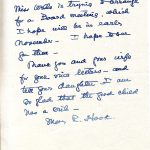 Miss Wells is trying to arrange
for a Board meeting, which
I hope will be in early
November - I hope to see
you then -
Thank you and your wife
for your nice letters - and
tell your daughter I am
so glad that the good child
has a crib -
Mary E. Hook